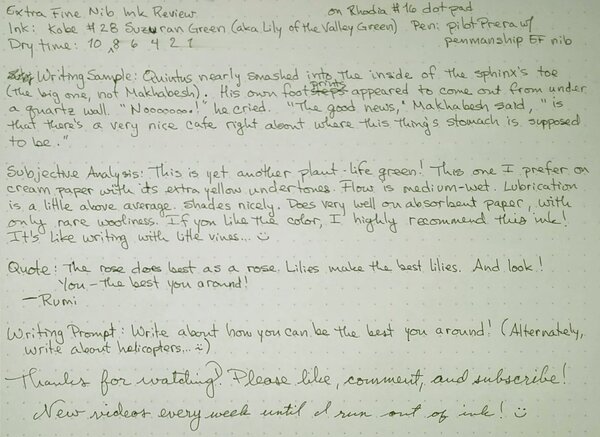 Extra Fine Nib Ink Review on Rhodia #16 dotpad
Ink: Kobe #28 Suzuran Green (aka Lily of the Valley Green) Pen: pilot Prera w/
Dry time: 10 8 6 4 2 1 penmanship EF nib
Writing Sample: Quintus nearly smashed into the inside of the sphinx's toe
(the big one, not Makhabesh). His own footprints appeared to come out from under
a quartz wall. "Nooooooo!" he cried. "The good news," Makhabesh said, "is
that there's a very nice cafe right about where this thing's stomach is supposed
to be."
Subjective Analysis: This is yet another plant-life green! This one I prefer on
cream paper with its extra yellow undertones. Flow is medium-wet. Lubrication
is a little above average. Shades nicely. Does very well on absorbent paper, with
only rare wooliness. If you like the color, I highly recommend this ink!
It's like writing with little vines... :)
Quote: The rose does best as a rose. Lilies make the best lilies. And look!
You - the best you around!
—Rumi
Writing Prompt: Write about how you can be the best you around! (Alternately,
write about helicopters... :)
Thanks for watching! Please like, comment, and subscribe!
New videos every week until I run out of ink! :)